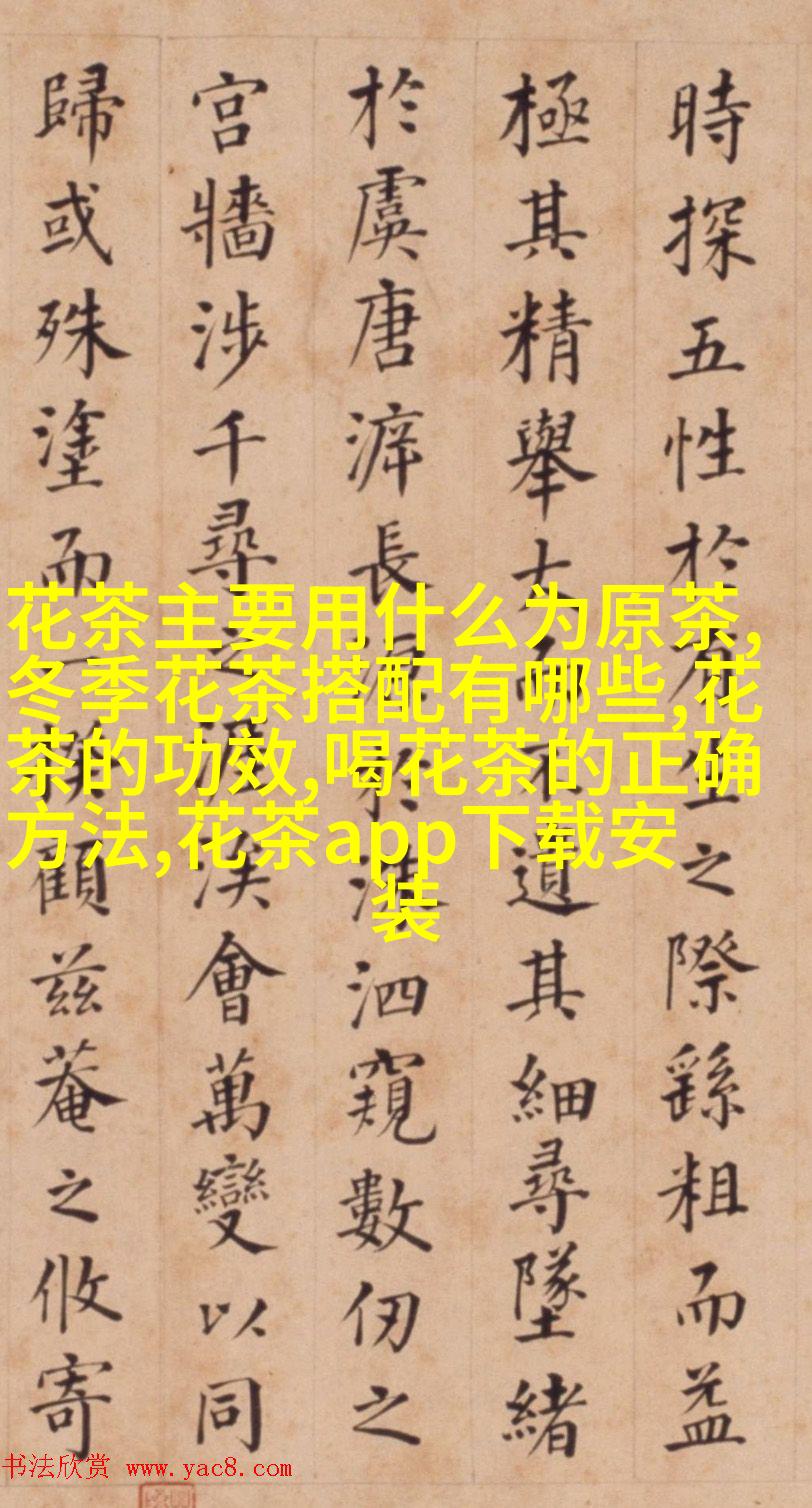 時探五性於生之際繇粗而益
極其精舉大而不遺其細尋墜緒
於虞唐長源於洙泗窺數仞之
宮牆涉千尋之涯涘會萬變以同
歸或殊塗而一揆顧茲菴之攸寄
花茶主要用什么为原茶,
冬季花茶搭配有哪些,花
茶的功效,喝花茶的正确
方法,花茶app下载安
装
书法欣赏 www.yac8.com